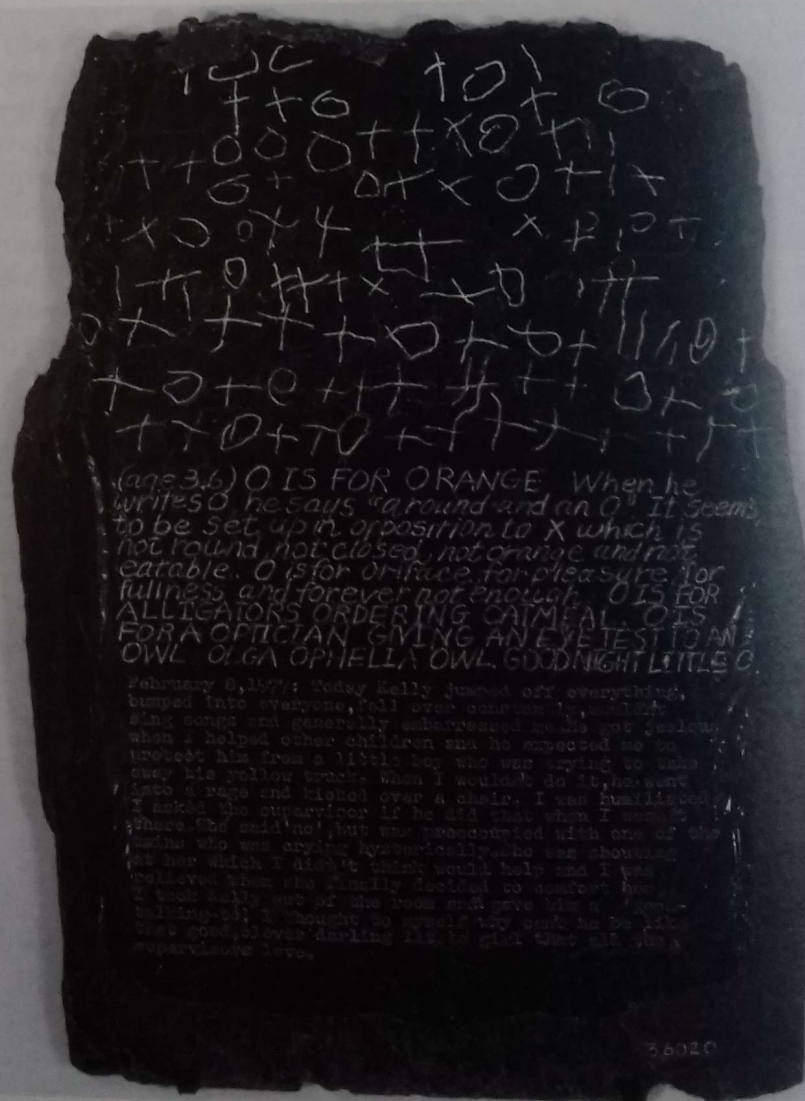 (age 3.6) O IS FOR ORANGE When he
writes O he says "around and an O" It seems
to be set up in opposition to X which is
not round, not closed, not orange and not
eatable. O is for oriface, for pleasure, for
fullness and forever not enough. O IS FOR
ALLIGATORS ORDERING OATMEAL. O IS
FOR A OPTICIAN GIVING AN EYE TEST TO AN
OWL OLGA OPHELIA OWL GOODNIGHT LITTLE O.
February 8, 1977: Today Kelly jumped off everything,
bumped into everyone, fell over constantly,
sing songs and generally embarressed me. He got jealous
when I helped other children and he expected me to
protect him from a little boy who was trying to take
away his yellow truck. When I wouldn't do it, he went
into a rage and kicked over a chair. I was humiliated.
I asked the supervisor if he did that when I wasn't
there. She said 'no', but was preoccupied with one of the
twins who was crying hysterically. She was shouting
at her which I didn't think would help and I was
relieved when she finally decided to comfort her.
I took Kelly out of the room and gave him a
talking-to! I thought to myself why can't he be like
that good, clever darling little girl that all the
supervisors love.
36020